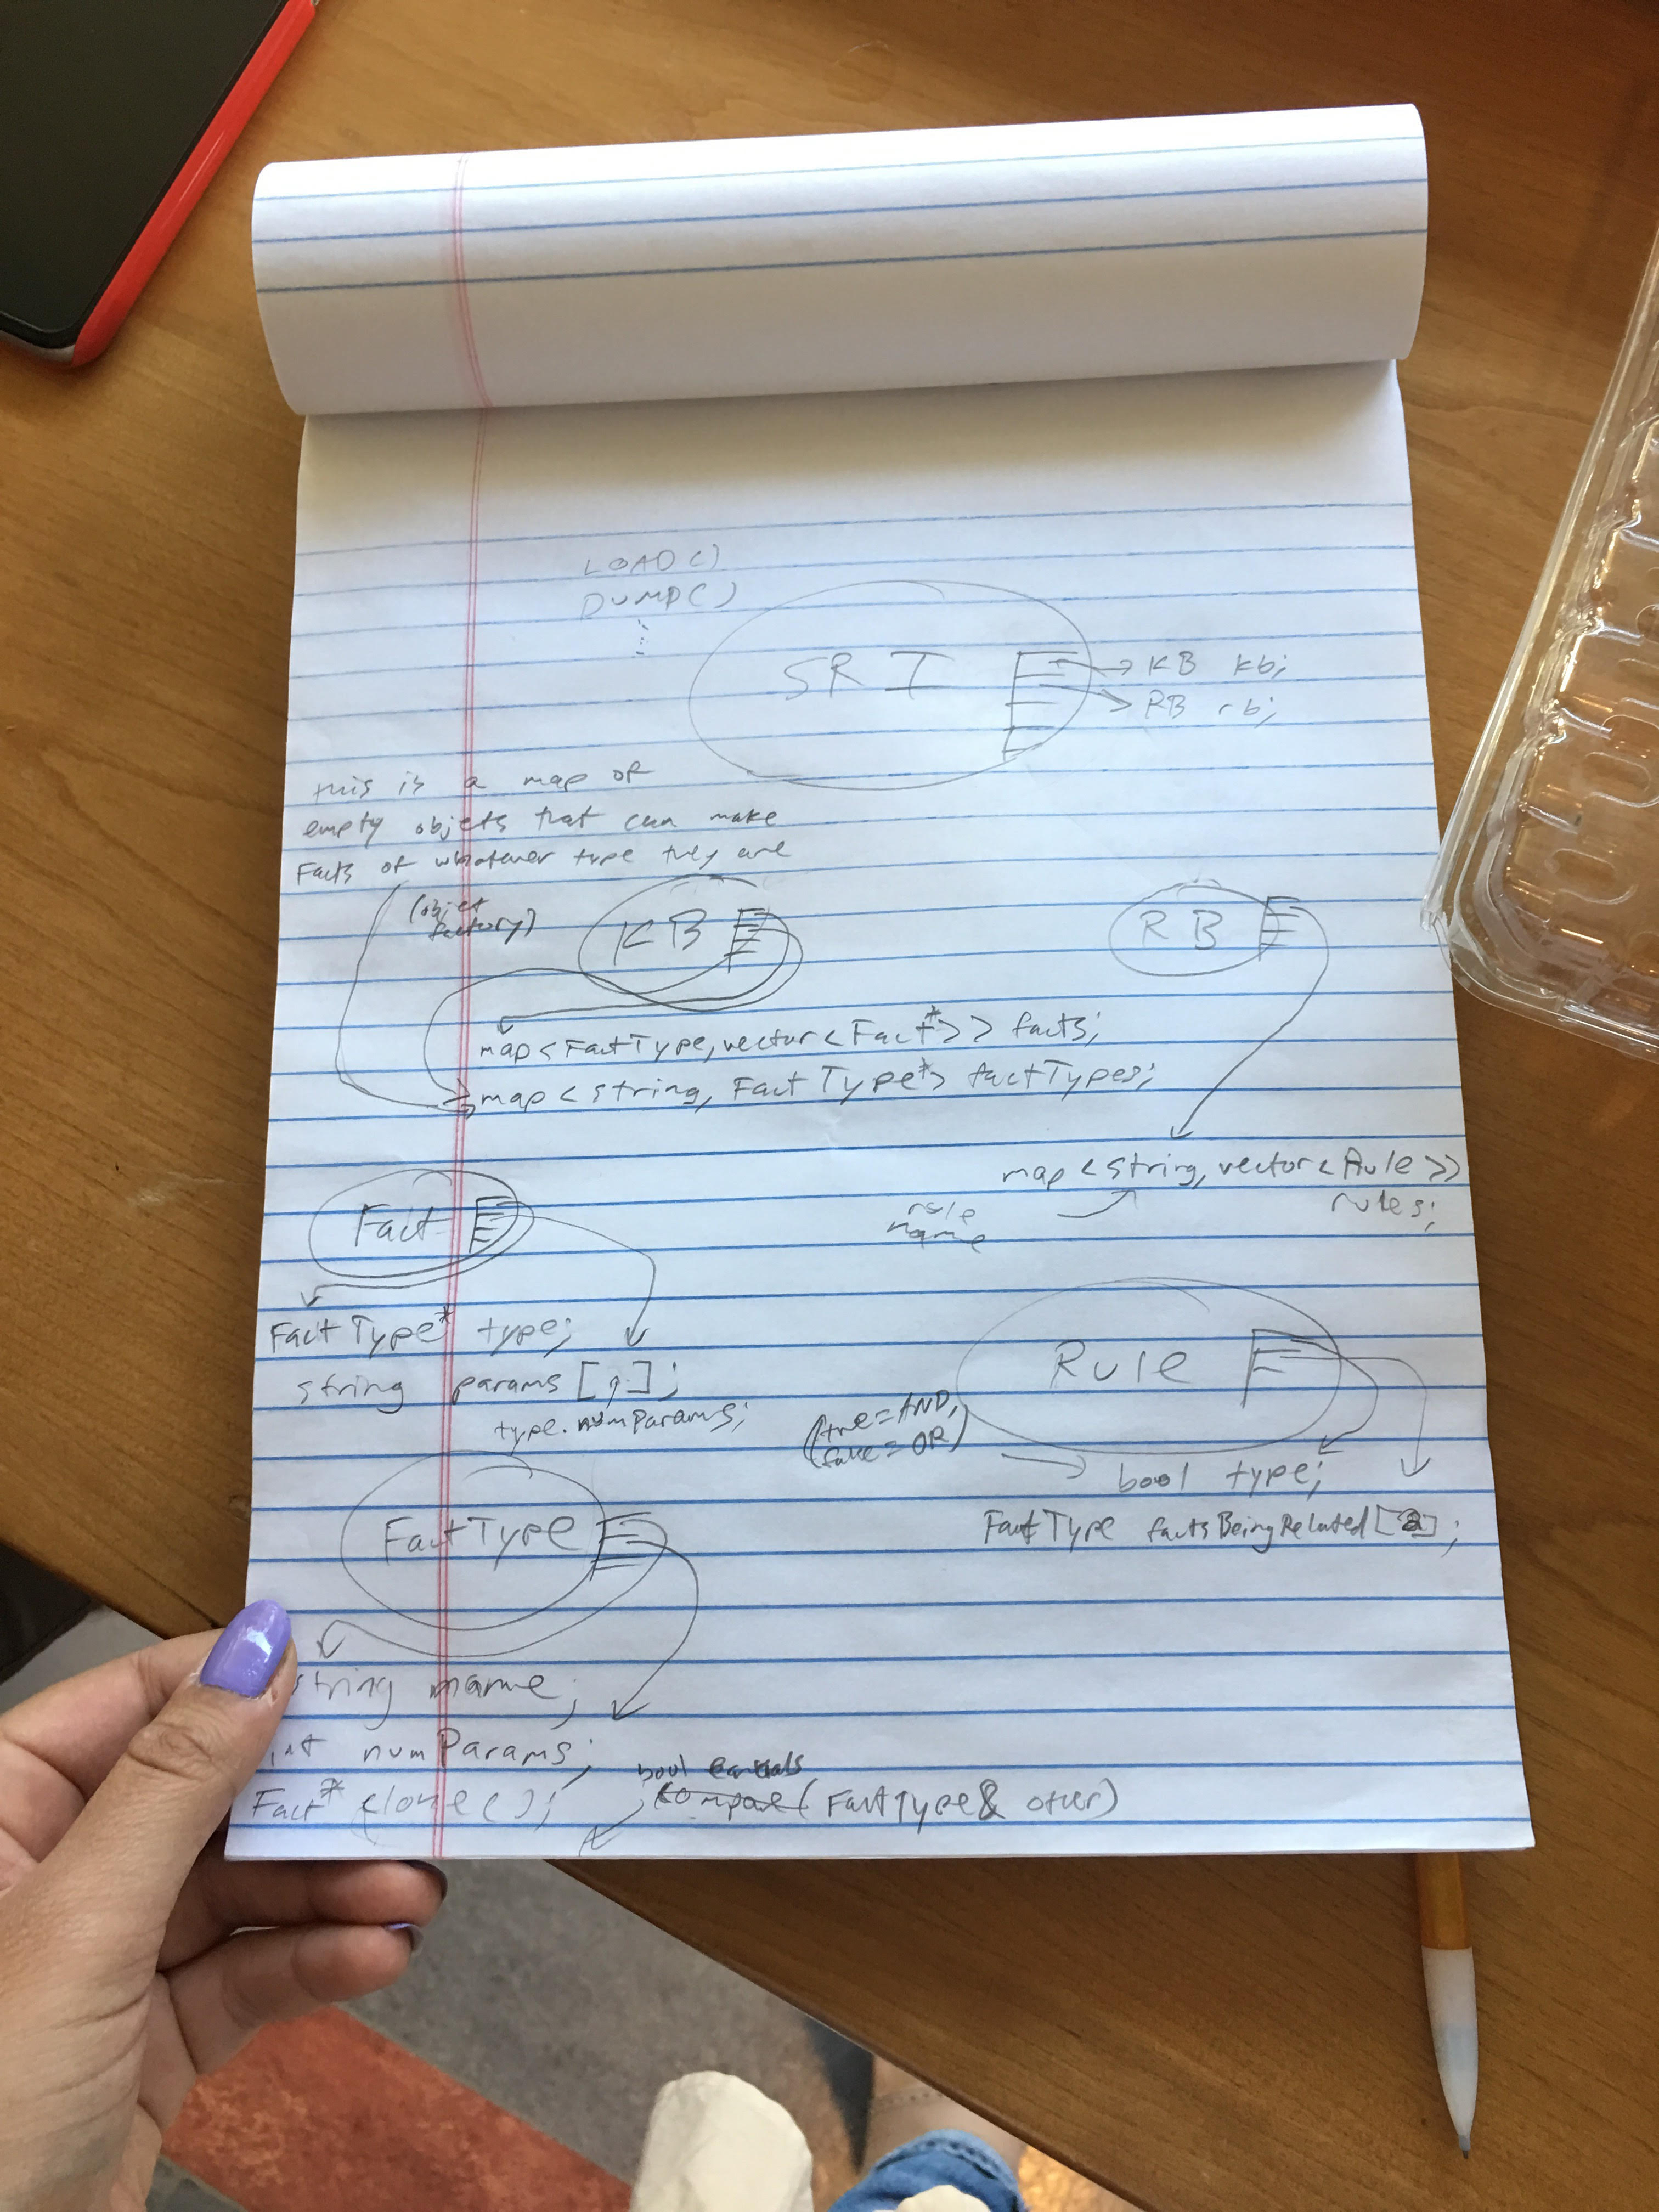 LOAD()
DUMP()
SRI
KB kb;
RB rb;
this is a map of
empty objets that can make
Facts of whatever type they are
(objet
factory)
KB
RB
map<FactType, vector<Fact*>> facts;
map<string, FactType*> factTypes;
map<string, vector<Rule>>
rules;
rule
name
Fact
FactType* type;
string params[ ];
type.numParams;
Rule
(true=AND,
false=OR)
bool type;
FactType factsBeingRelated[2];
FactType
string name;
int numParams;
Fact* clone();
bool
compare(FactType& other)